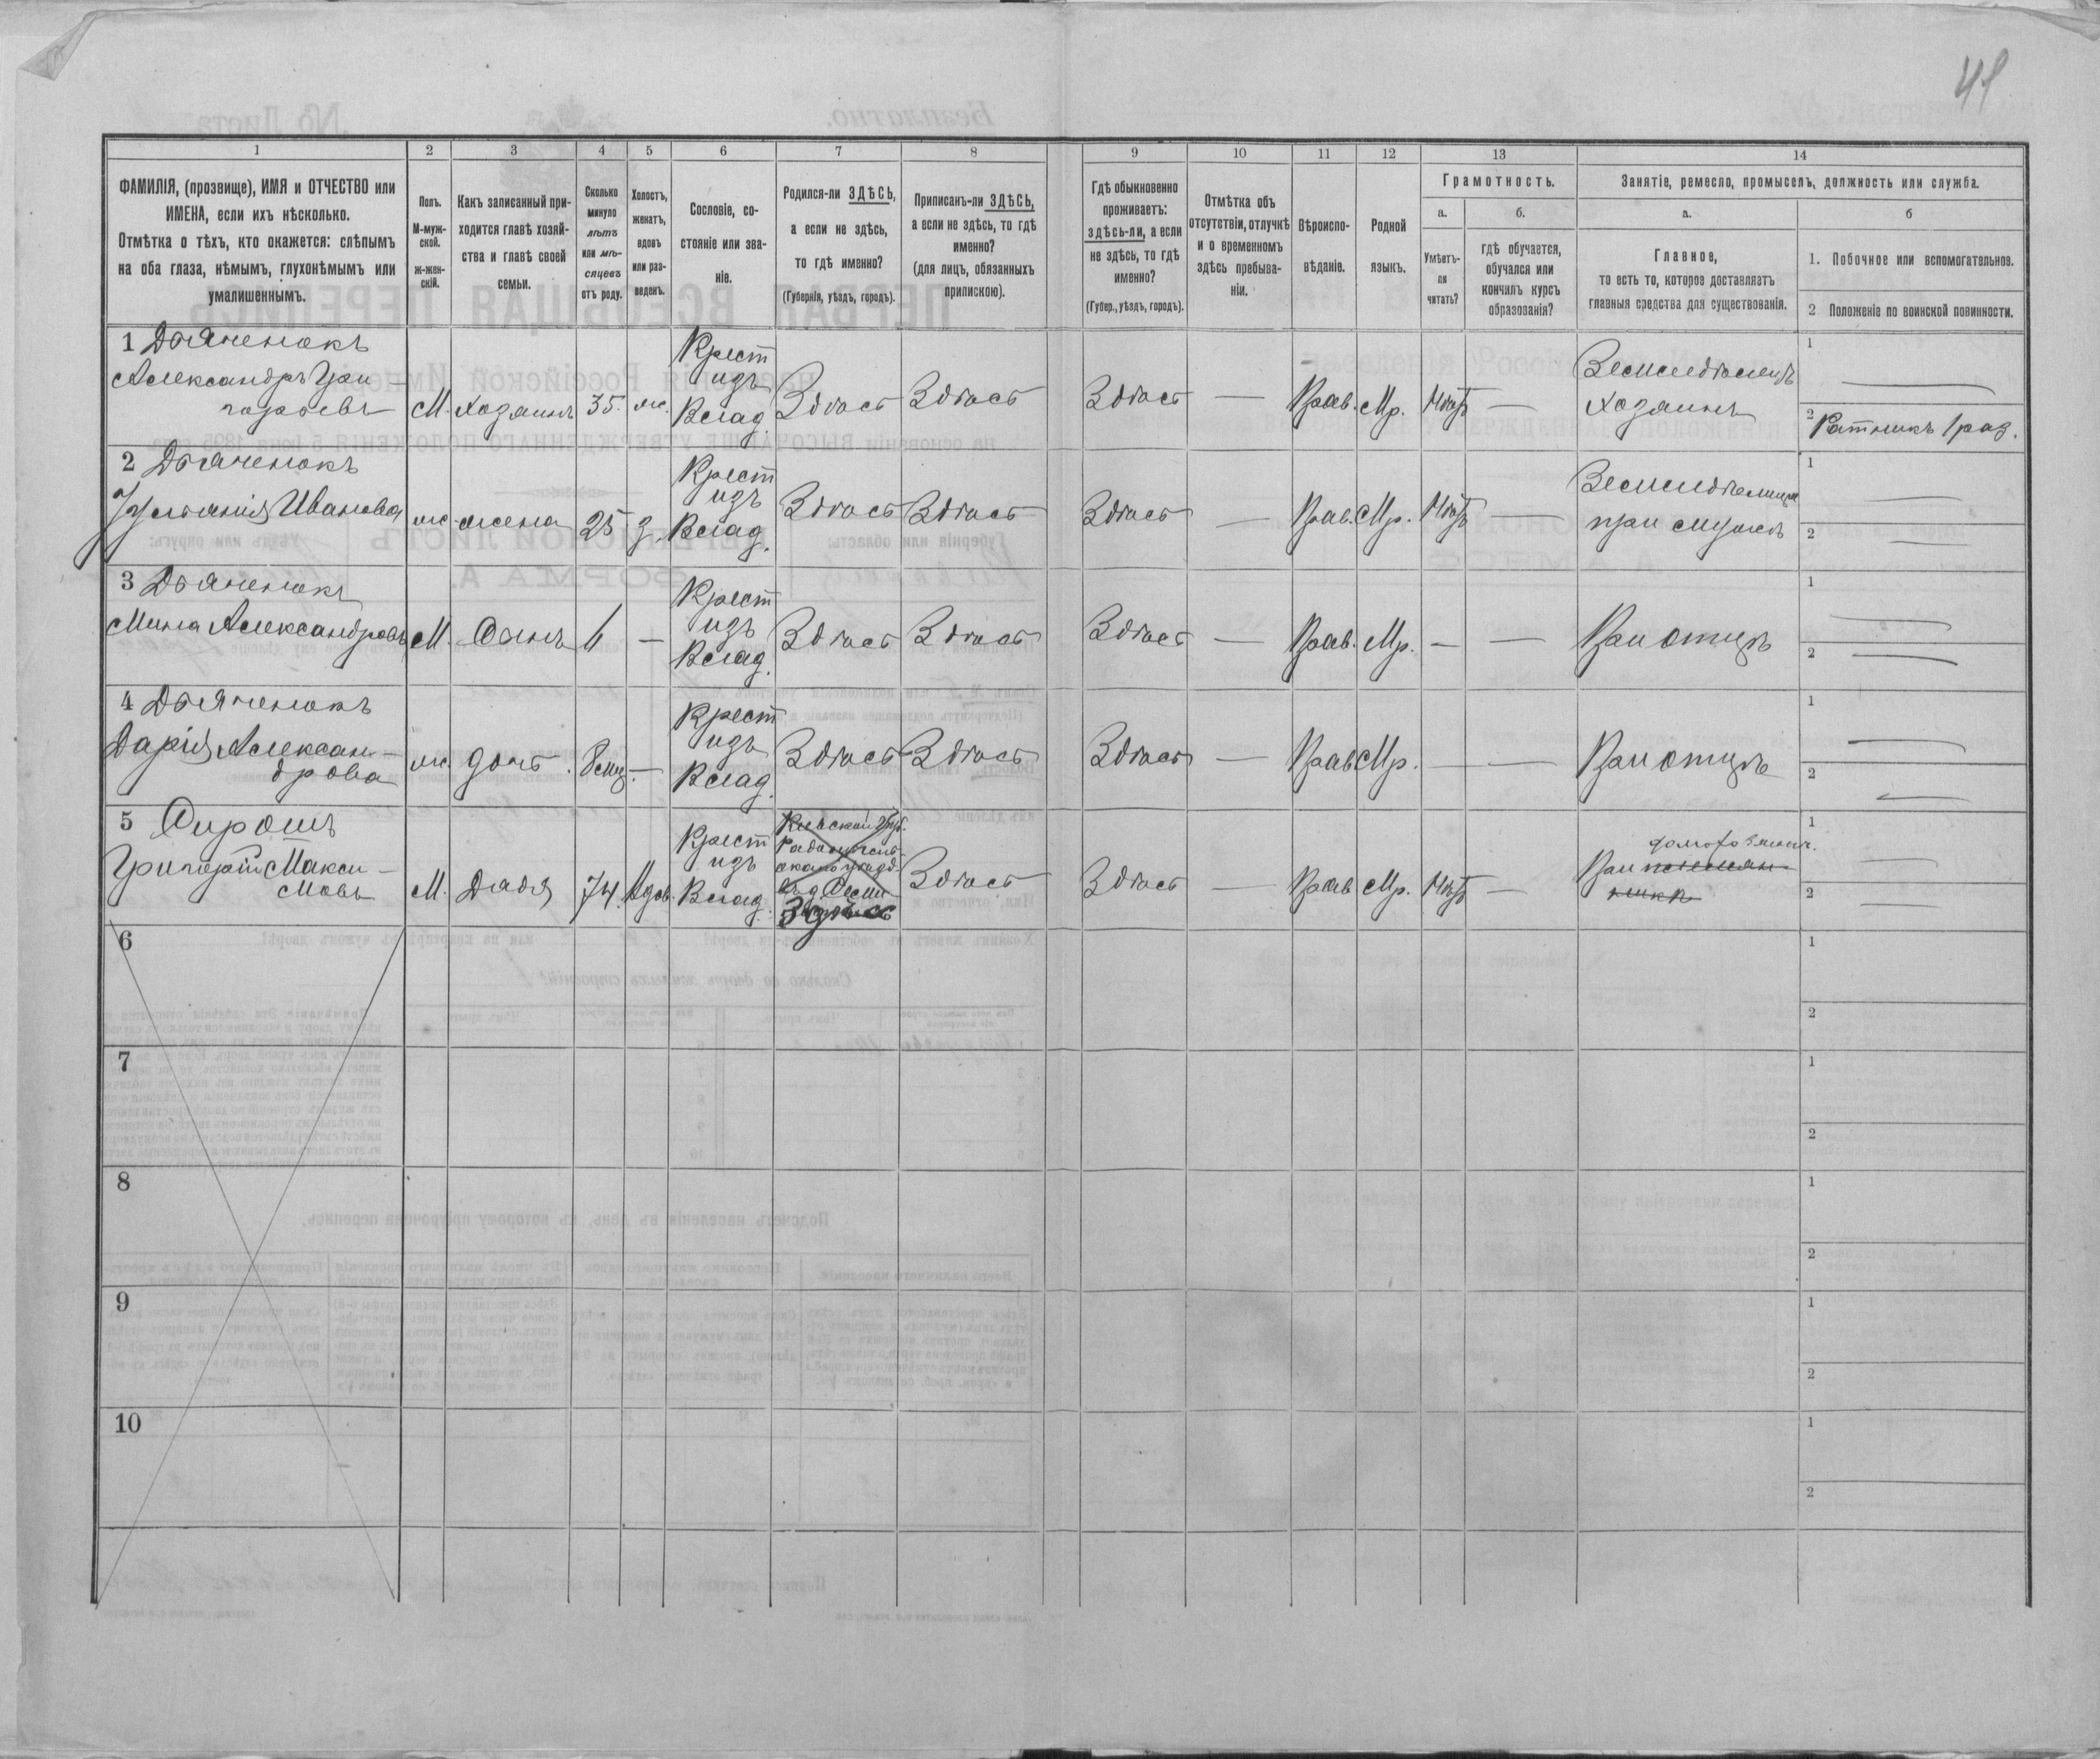 41
1 2 3 4 5 6 7 8 9 10 11 12 13 14
ФАМИЛІЯ, (прозвище), ИМЯ и ОТЧЕСТВО или
ИМЕНА, если ихъ нѣсколько.
Отмѣтка о тѣхъ, кто окажется: слѣпымъ
на оба глаза, нѣмымъ, глухонѣмымъ или
умалишеннымъ.
Полъ.
М-муж-
ской.
ж-жен-
скій.
Какъ записанный при-
ходится главѣ хозяй-
ства и главѣ своей
семьи.
Сколько
минуло
лѣтъ
или мѣ-
сяцевъ
отъ роду.
Холостъ,
женатъ,
вдовъ
или раз-
веденъ.
Сословіе, со-
стояніе или зва-
ніе.
Родился-ли ЗДѢСЬ,
а если не здѣсь,
то гдѣ именно?
(Губернія, уѣздъ, городъ).
Приписанъ-ли ЗДѢСЬ,
а если не здѣсь, то гдѣ
именно?
(для лицъ, обязанныхъ
припискою).
Гдѣ обыкновенно
проживаетъ:
здѣсь-ли, а если
не здѣсь, то гдѣ
именно?
(Губер., уѣздъ, городъ).
Отмѣтка объ
отсутствіи, отлучкѣ
и о временномъ
здѣсь пребыва-
ніи.
Вѣроиспо-
вѣданіе.
Родной
языкъ.
Грамотность.
а.
Умѣетъ-
ли
читать?
б.
гдѣ обучается,
обучался или
кончилъ курсъ
образованія?
Занятіе, ремесло, промыселъ, должность или служба.
а.
Главное,
то есть то, которое доставляетъ
главныя средства для существованія.
б
1. Побочное или вспомогательное.
2 Положеніе по воинской повинности.
1 Дьяченокъ
Александръ Гри-
горьевъ
М. хозяинъ 35. ж.
Крест
изъ
Влад.
Здѣсь Здѣсь Здѣсь — Прав. Мр. Нѣтъ —
Земледѣлецъ
хозяинъ
1 —
2 Ратникъ 1 раз.
2 Дьяченокъ
Ульянія Иванова
ж. жена 25 з.
Крест
изъ
Влад.
Здѣсь Здѣсь Здѣсь — Прав. Мр. Нѣтъ —
при мужѣ
1 —
2 —
3 Дьяченокъ
Мина Александровъ
М. Сынъ —
Крест
изъ
Влад.
Здѣсь Здѣсь Здѣсь — Прав. Мр. — —
При отцѣ
1 —
2 —
4 Дьяченокъ
Дарія Алексан-
дрова
ж. дочь. 8 мц. —
Крест
изъ
Влад.
Здѣсь Здѣсь Здѣсь — Прав Мр. — —
При отцѣ
1 —
2 —
5 Сирошъ
Григорій Макси-
мовъ
М. дядя 74. Вдов.
Крест
изъ
Влад.
Кіевской губ.
Радомысль-
скаго уѣзд.
Здѣсь
Здѣсь Здѣсь — Прав Мр. Нѣтъ —
При домохозяин.
1 —
2 —
6
1
2
7
1
2
8
1
2
9
1
2
10
1
2